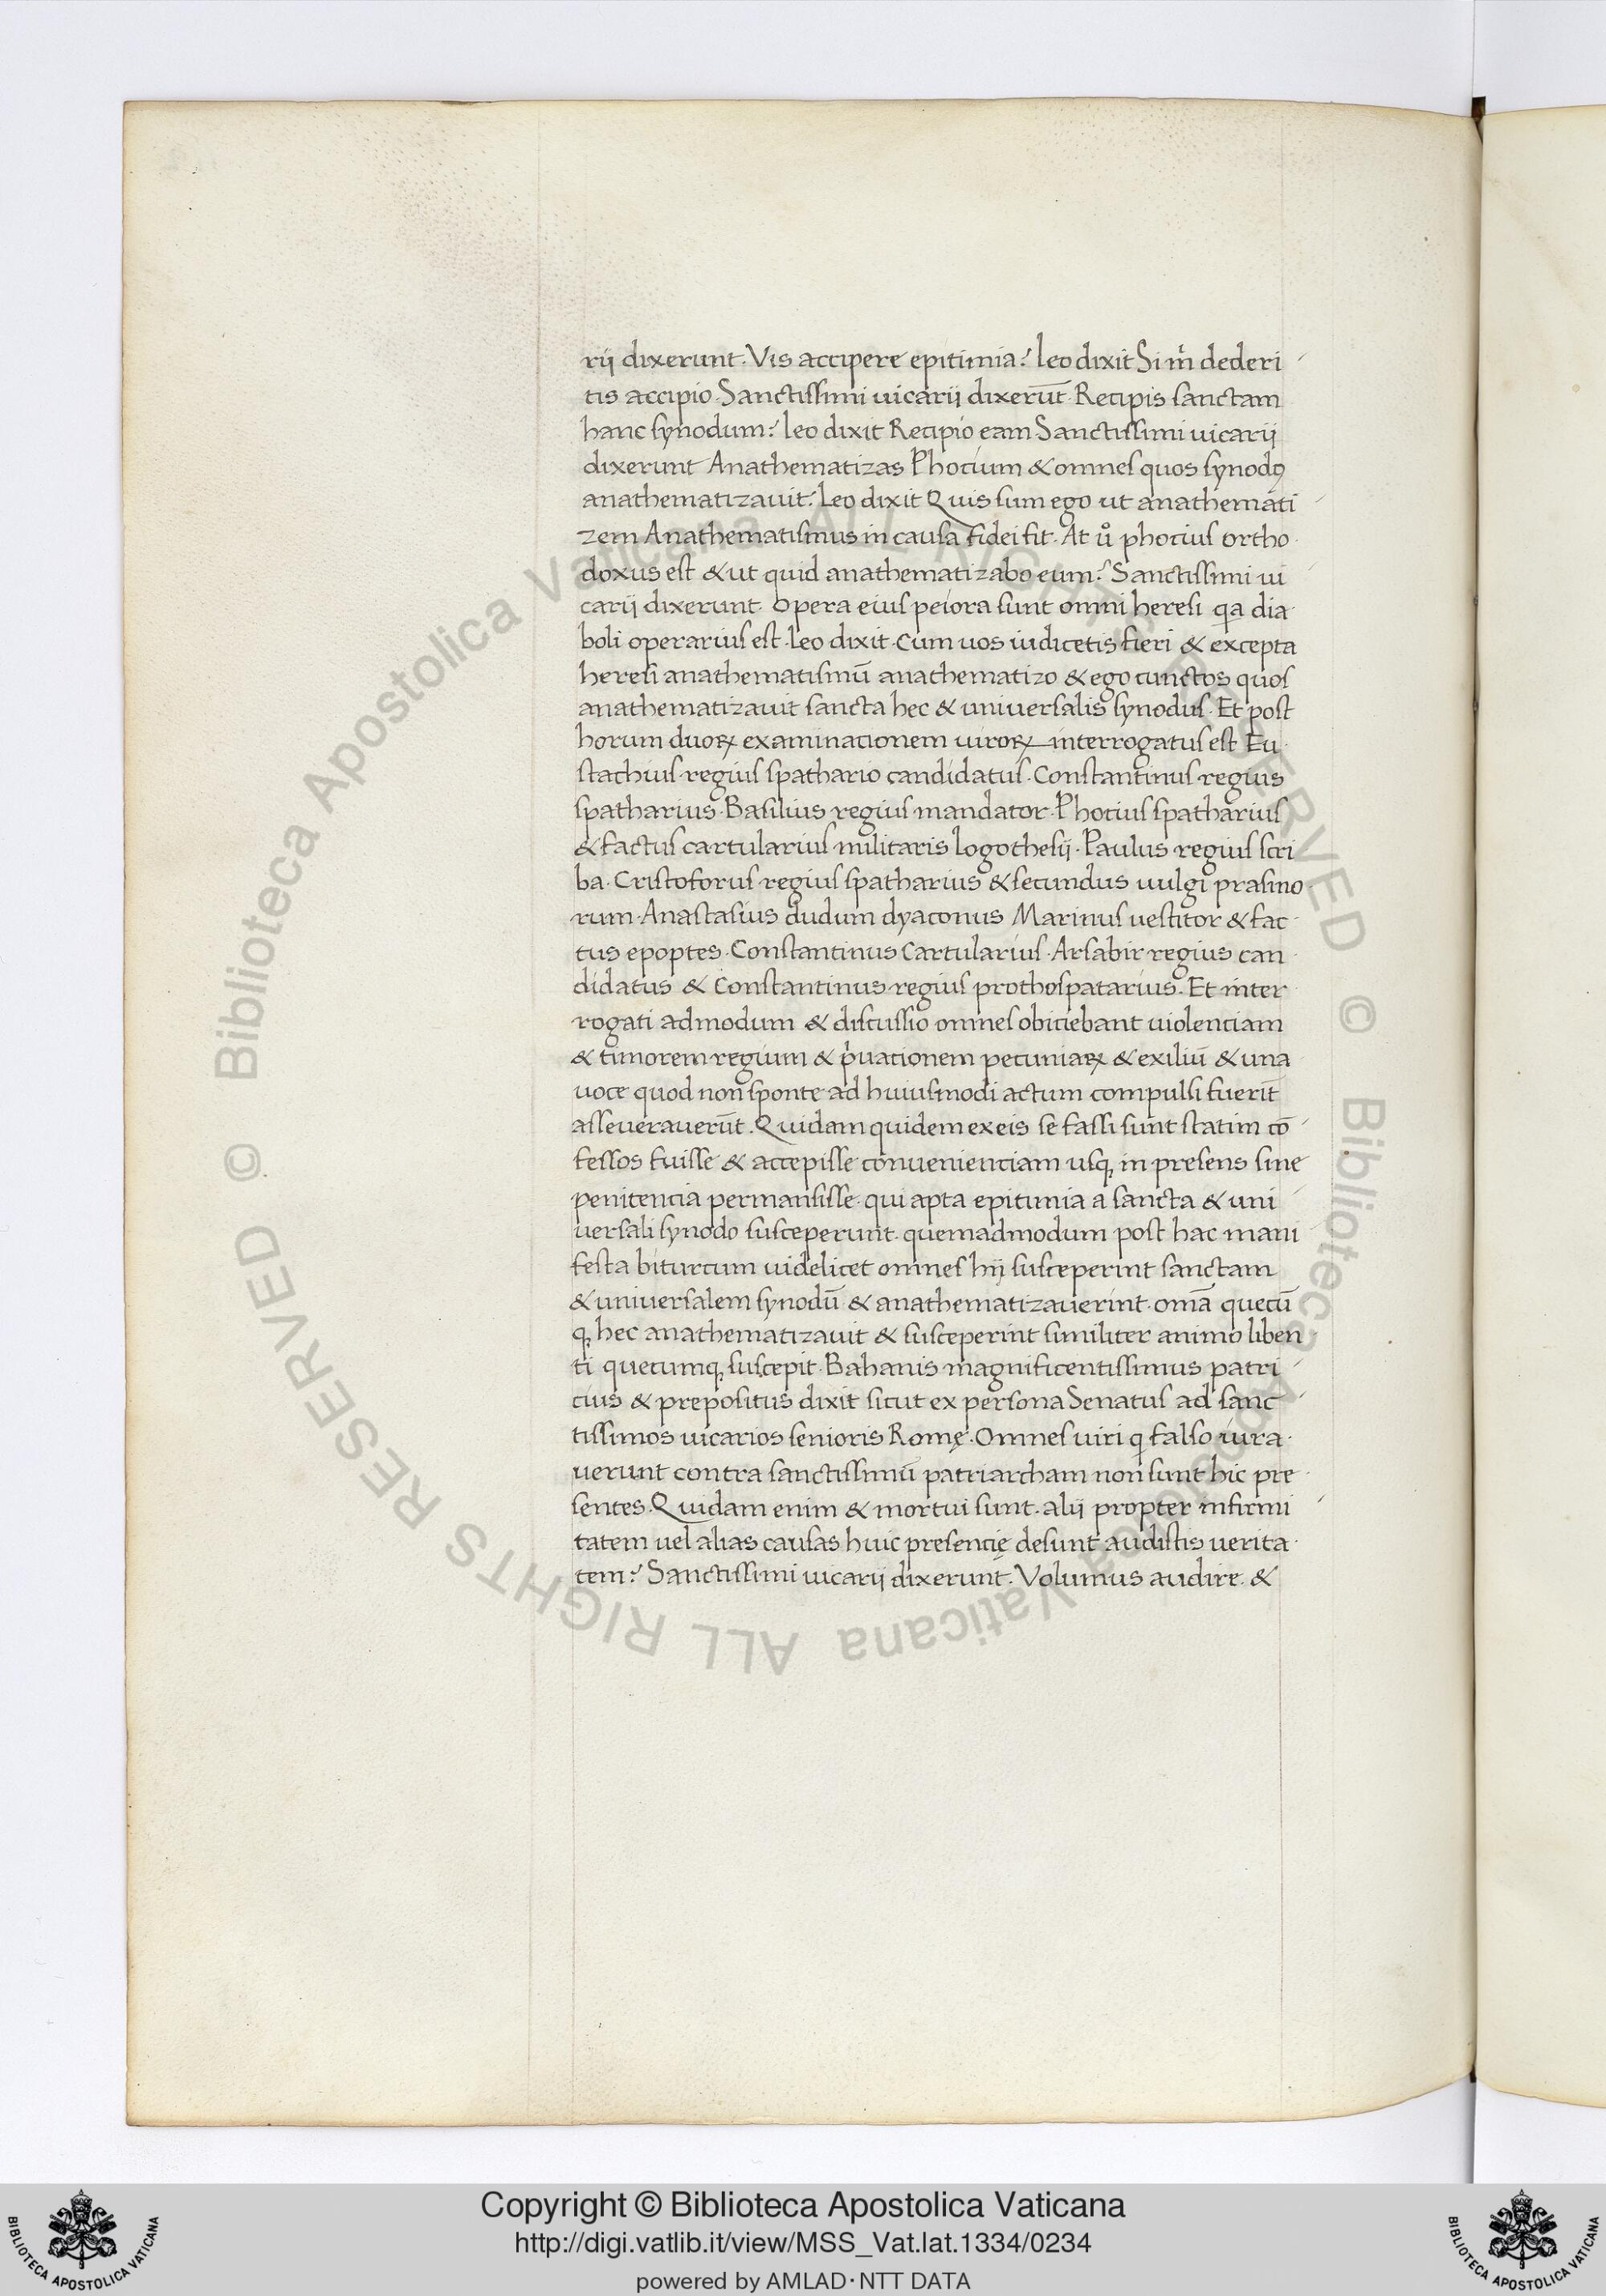 rij dixerunt. Vis accipere epitimia? Leo dixit Si m̃ dederi
tis accipio. Sanctissimi uicarij dixerūt. Recipis sanctam
hanc synodum? Leo dixit Recipio eam Sanctissimi uicarij
dixerunt Anathematizas Photium & omnes quos synodꝰ
anathematizauit? Leo dixit Quis sum ego ut anathemati
zem Anathematismus in causa fidei fit. At uͦ photius ortho
doxus est & ut quid anathematizabo eum? Sanctissimi ui
carij dixerunt. Opera eius peiora sunt omni heresi qa dia
boli operarius est. Leo dixit. Cum uos iudicetis fieri & excepta
heresi anathematismū anathematizo & ego cunctos quos
anathematizauit sancta hec & uniuersalis synodus. Et post
horum duoꝝ examinationem uiroꝝ interrogatus est Eu
stachius regius spathario candidatus. Constantinus regius
spatharius. Basilius regius mandator. Photius spatharius
& factus cartularius militaris logothesij. Paulus regius scri
ba. Cristoforus regius spatharius & secundus uulgi prasino
rum. Anastasius dudum dyaconus Marinus uestitor & fac
tus epoptes. Constantinus Cartularius. Arsabir regius can
didatus & Constantinus regius prothospatarius. Et inter
rogati admodum & discussio omnes obiciebant uiolentiam
& timorem regium & p̓uationem pecuniaꝝ & exiliū & una
uoce quod non sponte ad huiusmodi actum compulsi fuerīt
asseuerauerūt. Quidam quidem ex eis se fassi sunt statim cō
fessos fuisse & accepisse conuenienciam usqꝫ in presens sine
penitencia permansisse. qui apta epitimia a sancta & uni
uersali synodo susceperunt. quemadmodum post hac mani
festabitur cum uidelicet omnes hij susceperint sanctam
& uniuersalem synodū & anathematizauerint. omā quecū
qꝫ hec anathematizauit & susceperint similiter animo liben
ti quecumqꝫ suscepit. Bahanis magnificentissimus patri
cius & prepositus dixit sicut ex persona Senatus ad sanc
tissimos uicarios senioris Romę. Omnes uiri q falso iura
uerunt contra sanctissimū patriarcham non sunt hic pre
sentes. Quidam enim & mortui sunt. alij propter infirmi
tatem uel alias causas huic presencię desunt audistis uerita
tem? Sanctissimi uicarij dixerunt. Volumus audire. &
© Biblioteca Apostolica Vaticana ALL RIGHTS RESERVED
© Biblioteca Apostolica Vaticana ALL RIGHTS RESERVED
Copyright © Biblioteca Apostolica Vaticana
http://digi.vatlib.it/view/MSS_Vat.lat.1334/0234
powered by AMLAD·NTT DATA
BIBLIOTECA APOSTOLICA VATICANA
BIBLIOTECA APOSTOLICA VATICANA